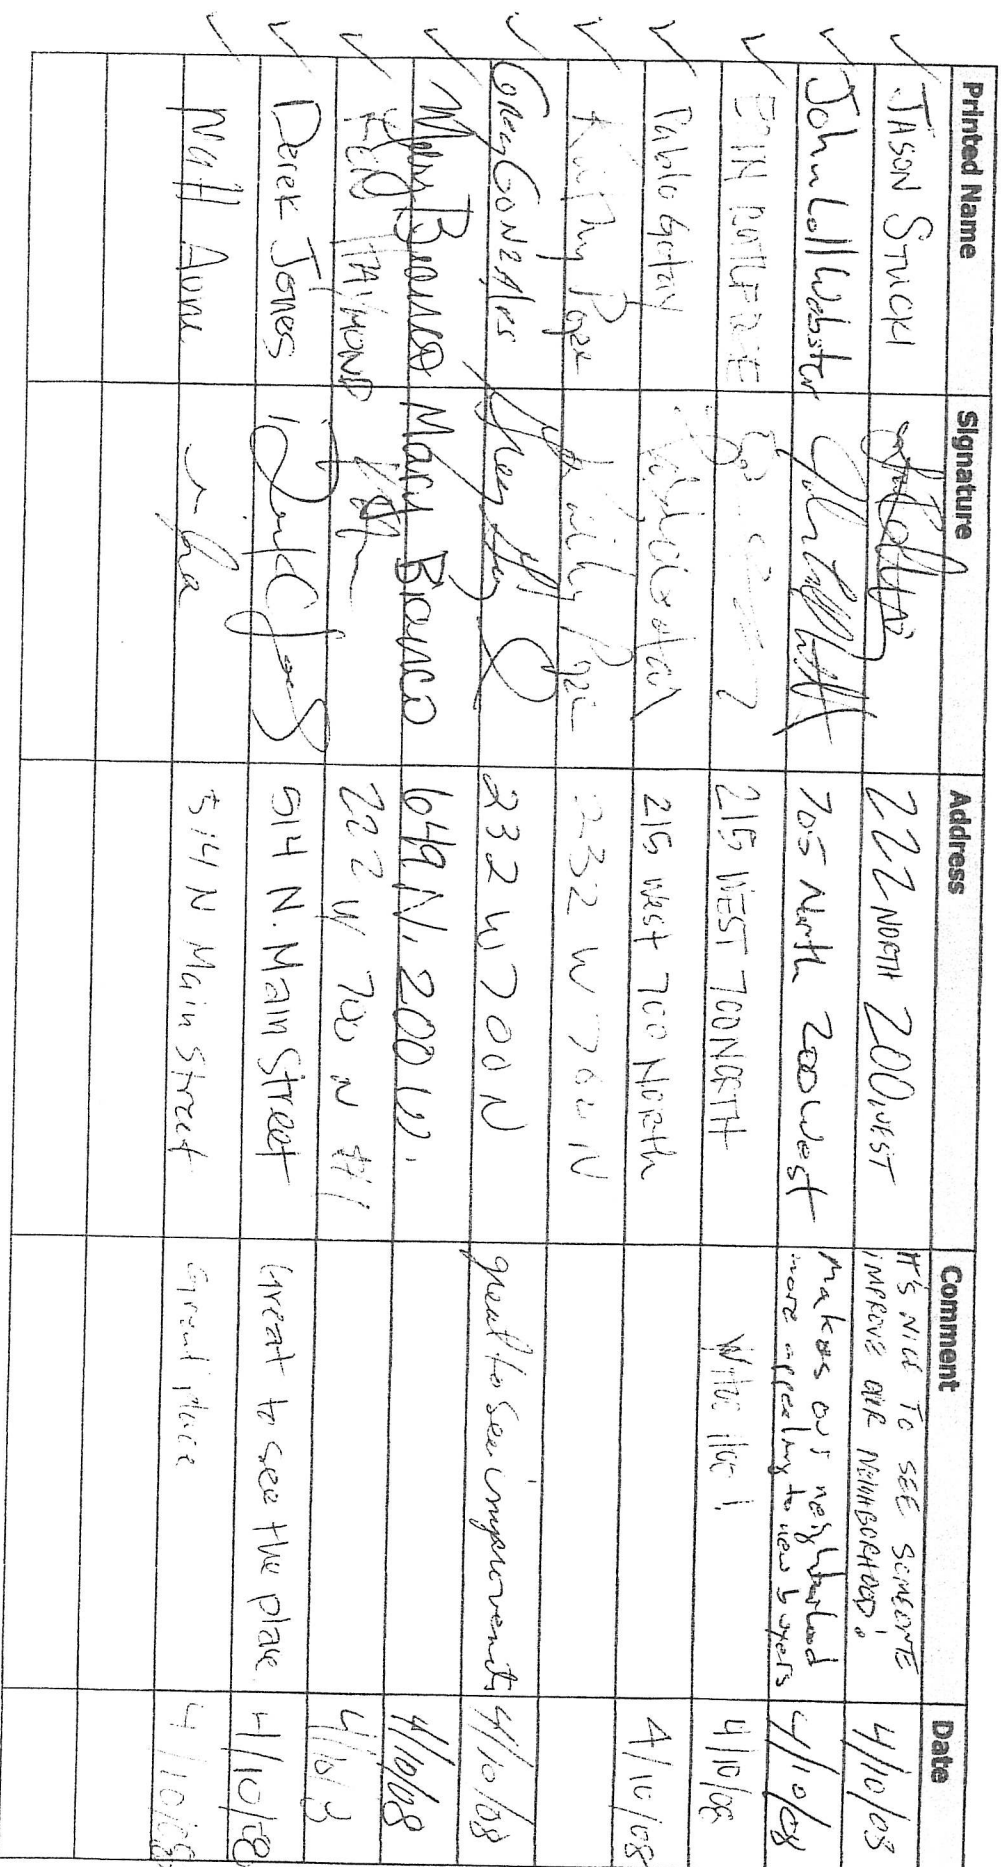 Printed Name Signature Address Comment Date
JASON STUCKI 222 NORTH 200 WEST IT'S NICE TO SEE SOMEONE IMPROVE OUR NEIGHBORHOOD! 4/10/08
John Lall Webster 705 North 200 West Makes our neighborhood more appealing to new buyers 4/10/08
ERIN 215 WEST 700 NORTH 4/10/08
Pablo Gotay 215 West 700 North 4/10/08
Kathy Poze 232 W 700 N
Greg Gonzales 232 W 700 N great to see improvements 4/10/08
Mary Bianco Mary Bianco 649 N. 200 W. 4/10/08
HAYMOND 222 W 700 N #1
Derek Jones 514 N. Main Street Great to see the place 4/10/08
Matt Aune 514 N Main Street Great place 4/10/08